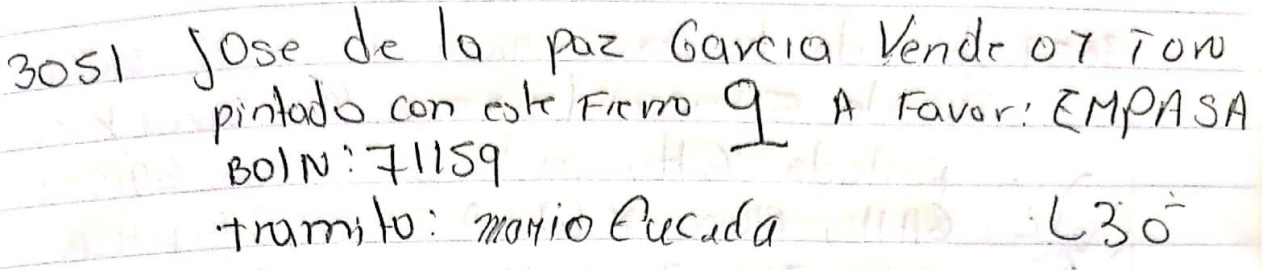 3051 Jose de la paz Garcia Vende 01 Toro
pintado con este Fierro A Favor: EMPASA
Bol N: 71159
tramito: mario L30